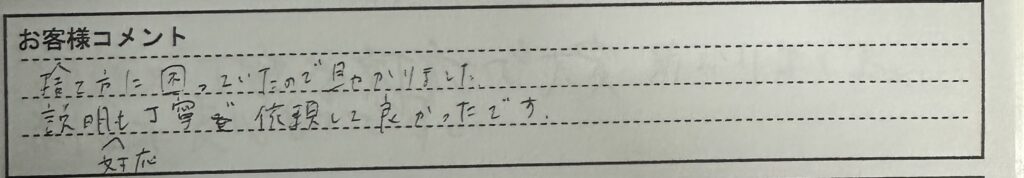 お客様コメント
捨て方に困っていたので助かりました
説明も丁寧で依頼して良かったです.
対応